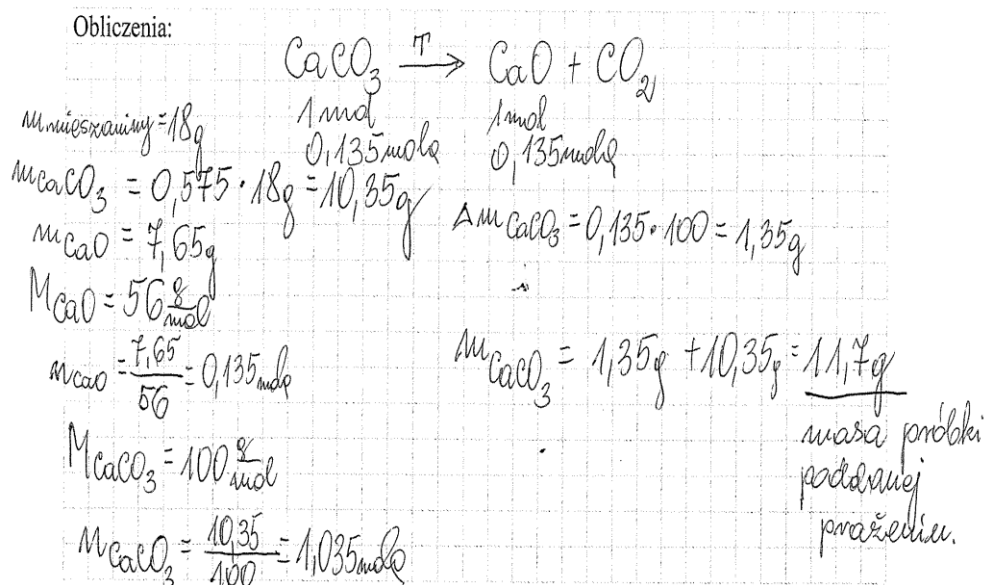 Obliczenia:
CaCO₃ —T→ CaO + CO₂
1 mol 1 mol
0,135 mola 0,135 mola
m mieszaniny = 18g
mCaCO₃ = 0,575 · 18g = 10,35g
mCaO = 7,65g
MCaO = 56 g/mol
nCaO = 7,65/56 = 0,135 mola
MCaCO₃ = 100 g/mol
nCaCO₃ = 10,35/100 = 1,035 mola
Δm CaCO₃ = 0,135 · 100 = 1,35g
mCaCO₃ = 1,35g + 10,35g = 11,7g
masa próbki
poddanej
prażeniu.